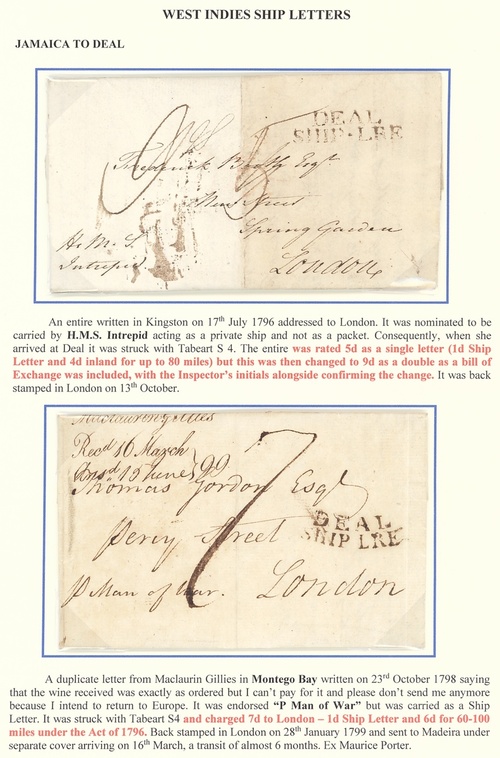 WEST INDIES SHIP LETTERS
JAMAICA TO DEAL
DEAL
SHIP-LRE
Frederick Booth Esqr
New Street
Spring Garden
London
H. M. S.
Intrepid
An entire written in Kingston on 17th July 1796 addressed to London. It was nominated to be
carried by H.M.S. Intrepid acting as a private ship and not as a packet. Consequently, when she
arrived at Deal it was struck with Tabeart S 4. The entire was rated 5d as a single letter (1d Ship
Letter and 4d inland for up to 80 miles) but this was then changed to 9d as a double as a bill of
Exchange was included, with the Inspector's initials alongside confirming the change. It was back
stamped in London on 13th October.
Maclaurin Gillies
Recd 16 March
Ansd 13 June 99
Thomas Gordon Esqr
7
DEAL
SHIP LRE
Percy Street
P Man of War.
London
A duplicate letter from Maclaurin Gillies in Montego Bay written on 23rd October 1798 saying
that the wine received was exactly as ordered but I can't pay for it and please don't send me anymore
because I intend to return to Europe. It was endorsed "P Man of War" but was carried as a Ship
Letter. It was struck with Tabeart S4 and charged 7d to London – 1d Ship Letter and 6d for 60-100
miles under the Act of 1796. Back stamped in London on 28th January 1799 and sent to Madeira under
separate cover arriving on 16th March, a transit of almost 6 months. Ex Maurice Porter.